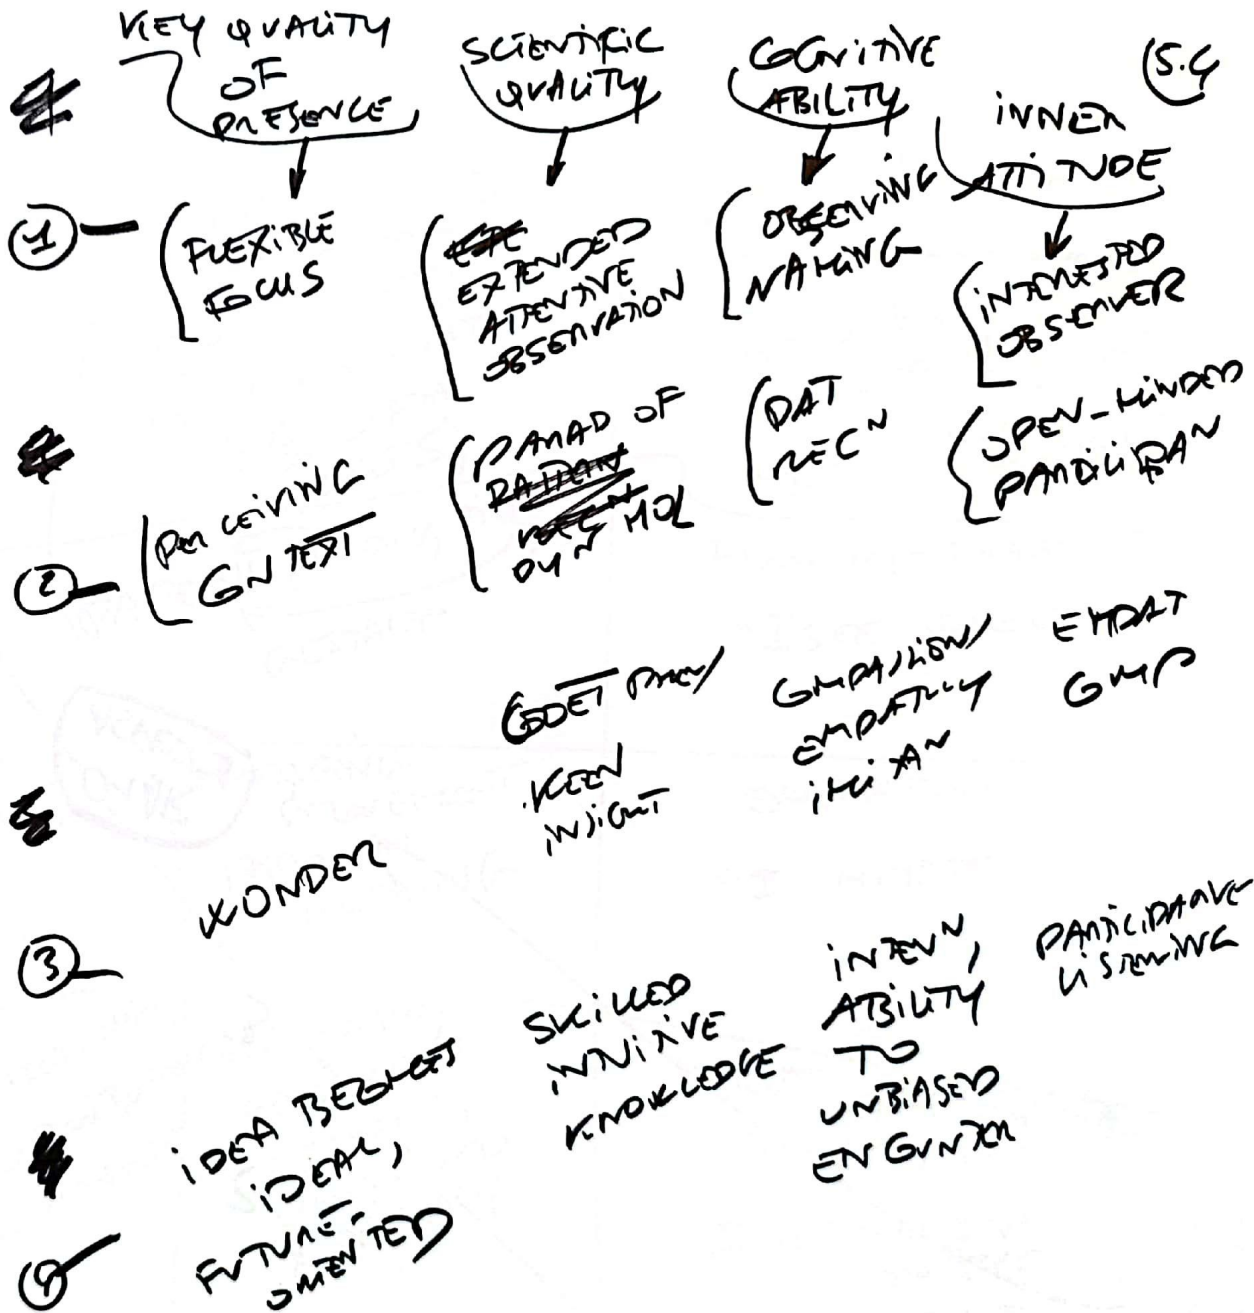 KEY QUALITY
OF
PRESENCE
SCIENTIFIC
QUALITY
COGNITIVE
ABILITY
INNER
ATTITUDE
5.4
1
FLEXIBLE
FOCUS
EXTENDED
ATTENTIVE
OBSERVATION
OBSERVING
NAMING
INTERESTED
OBSERVER
2
PERCEIVING
CONTEXT
PARAD OF
MOL
DYN
PAT
REC N
OPEN-MINDED
PARTICIPAN
3
WONDER
KEEN
INSIGHT
COMPASSION/
EMPATHY
EMPAT
COMP
4
IDEA BECOMES
IDEAL,
FUTURE-
ORIENTED
SKILLED
INTUITIVE
KNOWLEDGE
INTEN N,
ABILITY
TO
UNBIASED
ENCOUNTER
PARTICIPATIVE
LISTENING